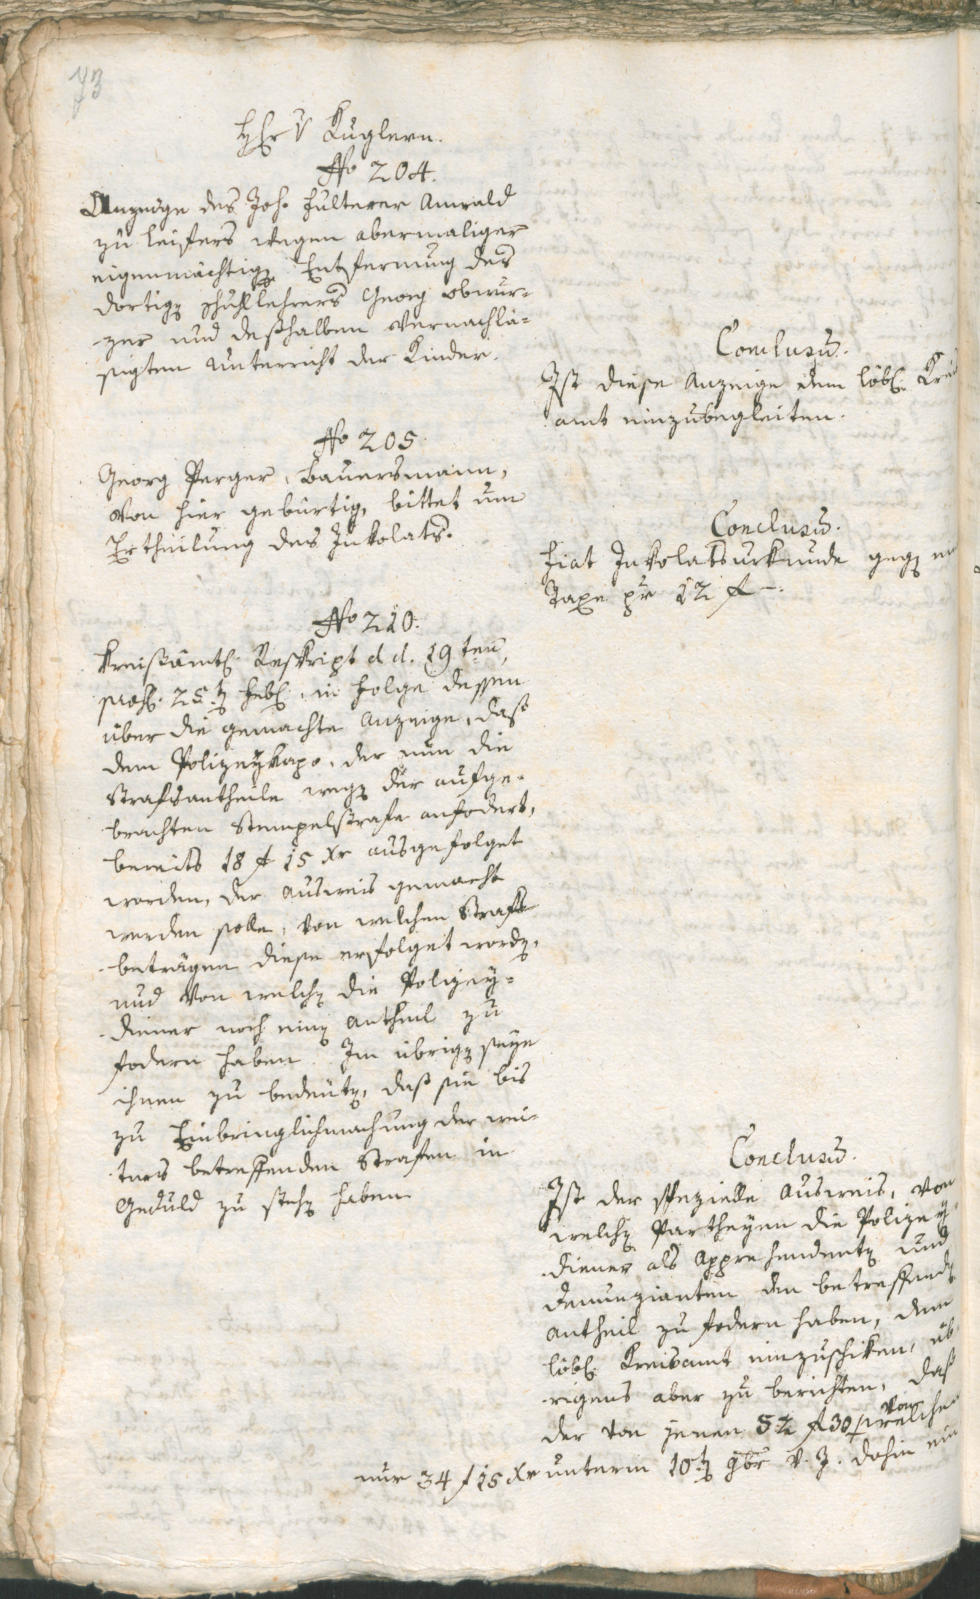 73
H. Er v Kuglern.
No 204.
Anzeige des Joh. Fulterer Anwald
zu Leifers wegen abermaliger
eigenmächtig. Entfernung des
dortig. Schullehrers Georg Obwur-
zer und deßhalben vernachlä-
sigten Unterricht der Kinder.
Conclusum.
Ist diese Anzeige dem löbl. Kreis
amt einzubegleiten.
No 205
Georg Perger, Bauersmann,
von hier gebürtig, bittet um
Ertheilung des Inkolats.
Conclusum.
Fiat Inkolatsurkunde geg.
Taxe pr 12 f –.
No 210.
Kreisämtl. Reskript d d. 19ten,
präs. 25t. Feb. in Folge dessen
über die gemachte Anzeige, daß
dem Polizeykapo, der nun die
Strafsantheile weg. der aufge-
brachten Stempelstrafe anfodert,
bereits 18 f 15 xr ausgefolget
worden, der Ausweis gemacht
werden solle, von welchen Straf-
beträgen diese erfolget word.,
und von welch. die Polizey-
diener noch ein. Antheil zu
fodern haben. Im übrig. seye
ihnen zu bedeut., daß sie bis
zu Einbringlichmachung der wei-
ters betreffenden Strafen in
Geduld zu steh. haben.
Conclusum.
Ist der spezielle Ausweis, von
welch. Partheyen die Polizey-
diener als Apprehendent. und
Denunzianten den betreffend.
Antheil zu fodern haben, dem
löbl. Kreisamt einzuschiken, üb
rigens aber zu berichten, daß
der von jenen 52 f 30 von welchen
nur 34 f 15 xr unterm 10t. 9br v. J. dahin ein